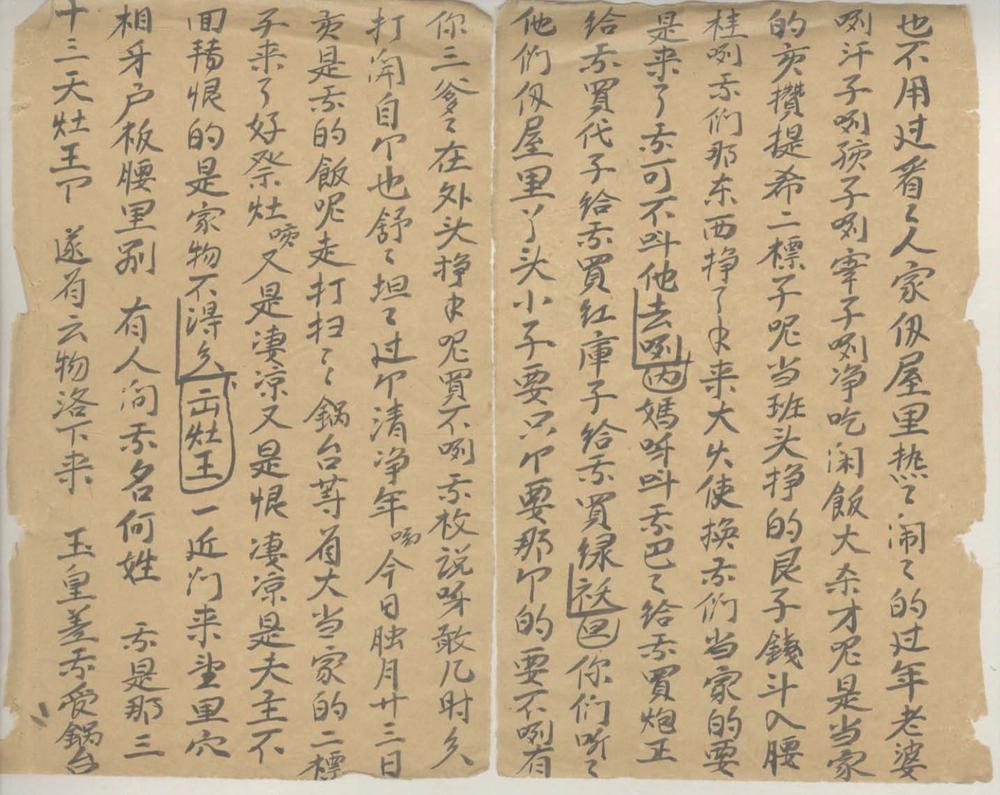 也不用过看〻人家伋屋里热〻闹〻的过年老婆
咧汗子咧孩子咧宰子咧净吃闲飯大杀才呢是当家
的亥攒提希二標子呢当班头挣的艮子錢斗入腰
柱咧示们那东西挣了来大火使换示们当家的要
是来了示可不叫他去咧丙媽呀叫示巴〻给示買炮正
给示買代子给示買红庫子给示買绿袄囬你们听〻
他们伋屋里丫头小子要只个要那个的要不咧有
你三爹〻在外头挣呢買不咧示枚说呀敢几时久
打闹自个也舒〻坦〻过个清净年咧今日蚀月廿三日
亥是示的飯呢走打扫〻锅台等有大当家的二標
子来了好祭灶唉又是凄凉又是恨凄凉是夫主不
囬转恨的是家物不得久出灶王一近门来堂里穴
相牙户板腰里别 有人问示名何姓 示是那三
十三天灶王 遂有云物洛下来 玉皇差示受锅台